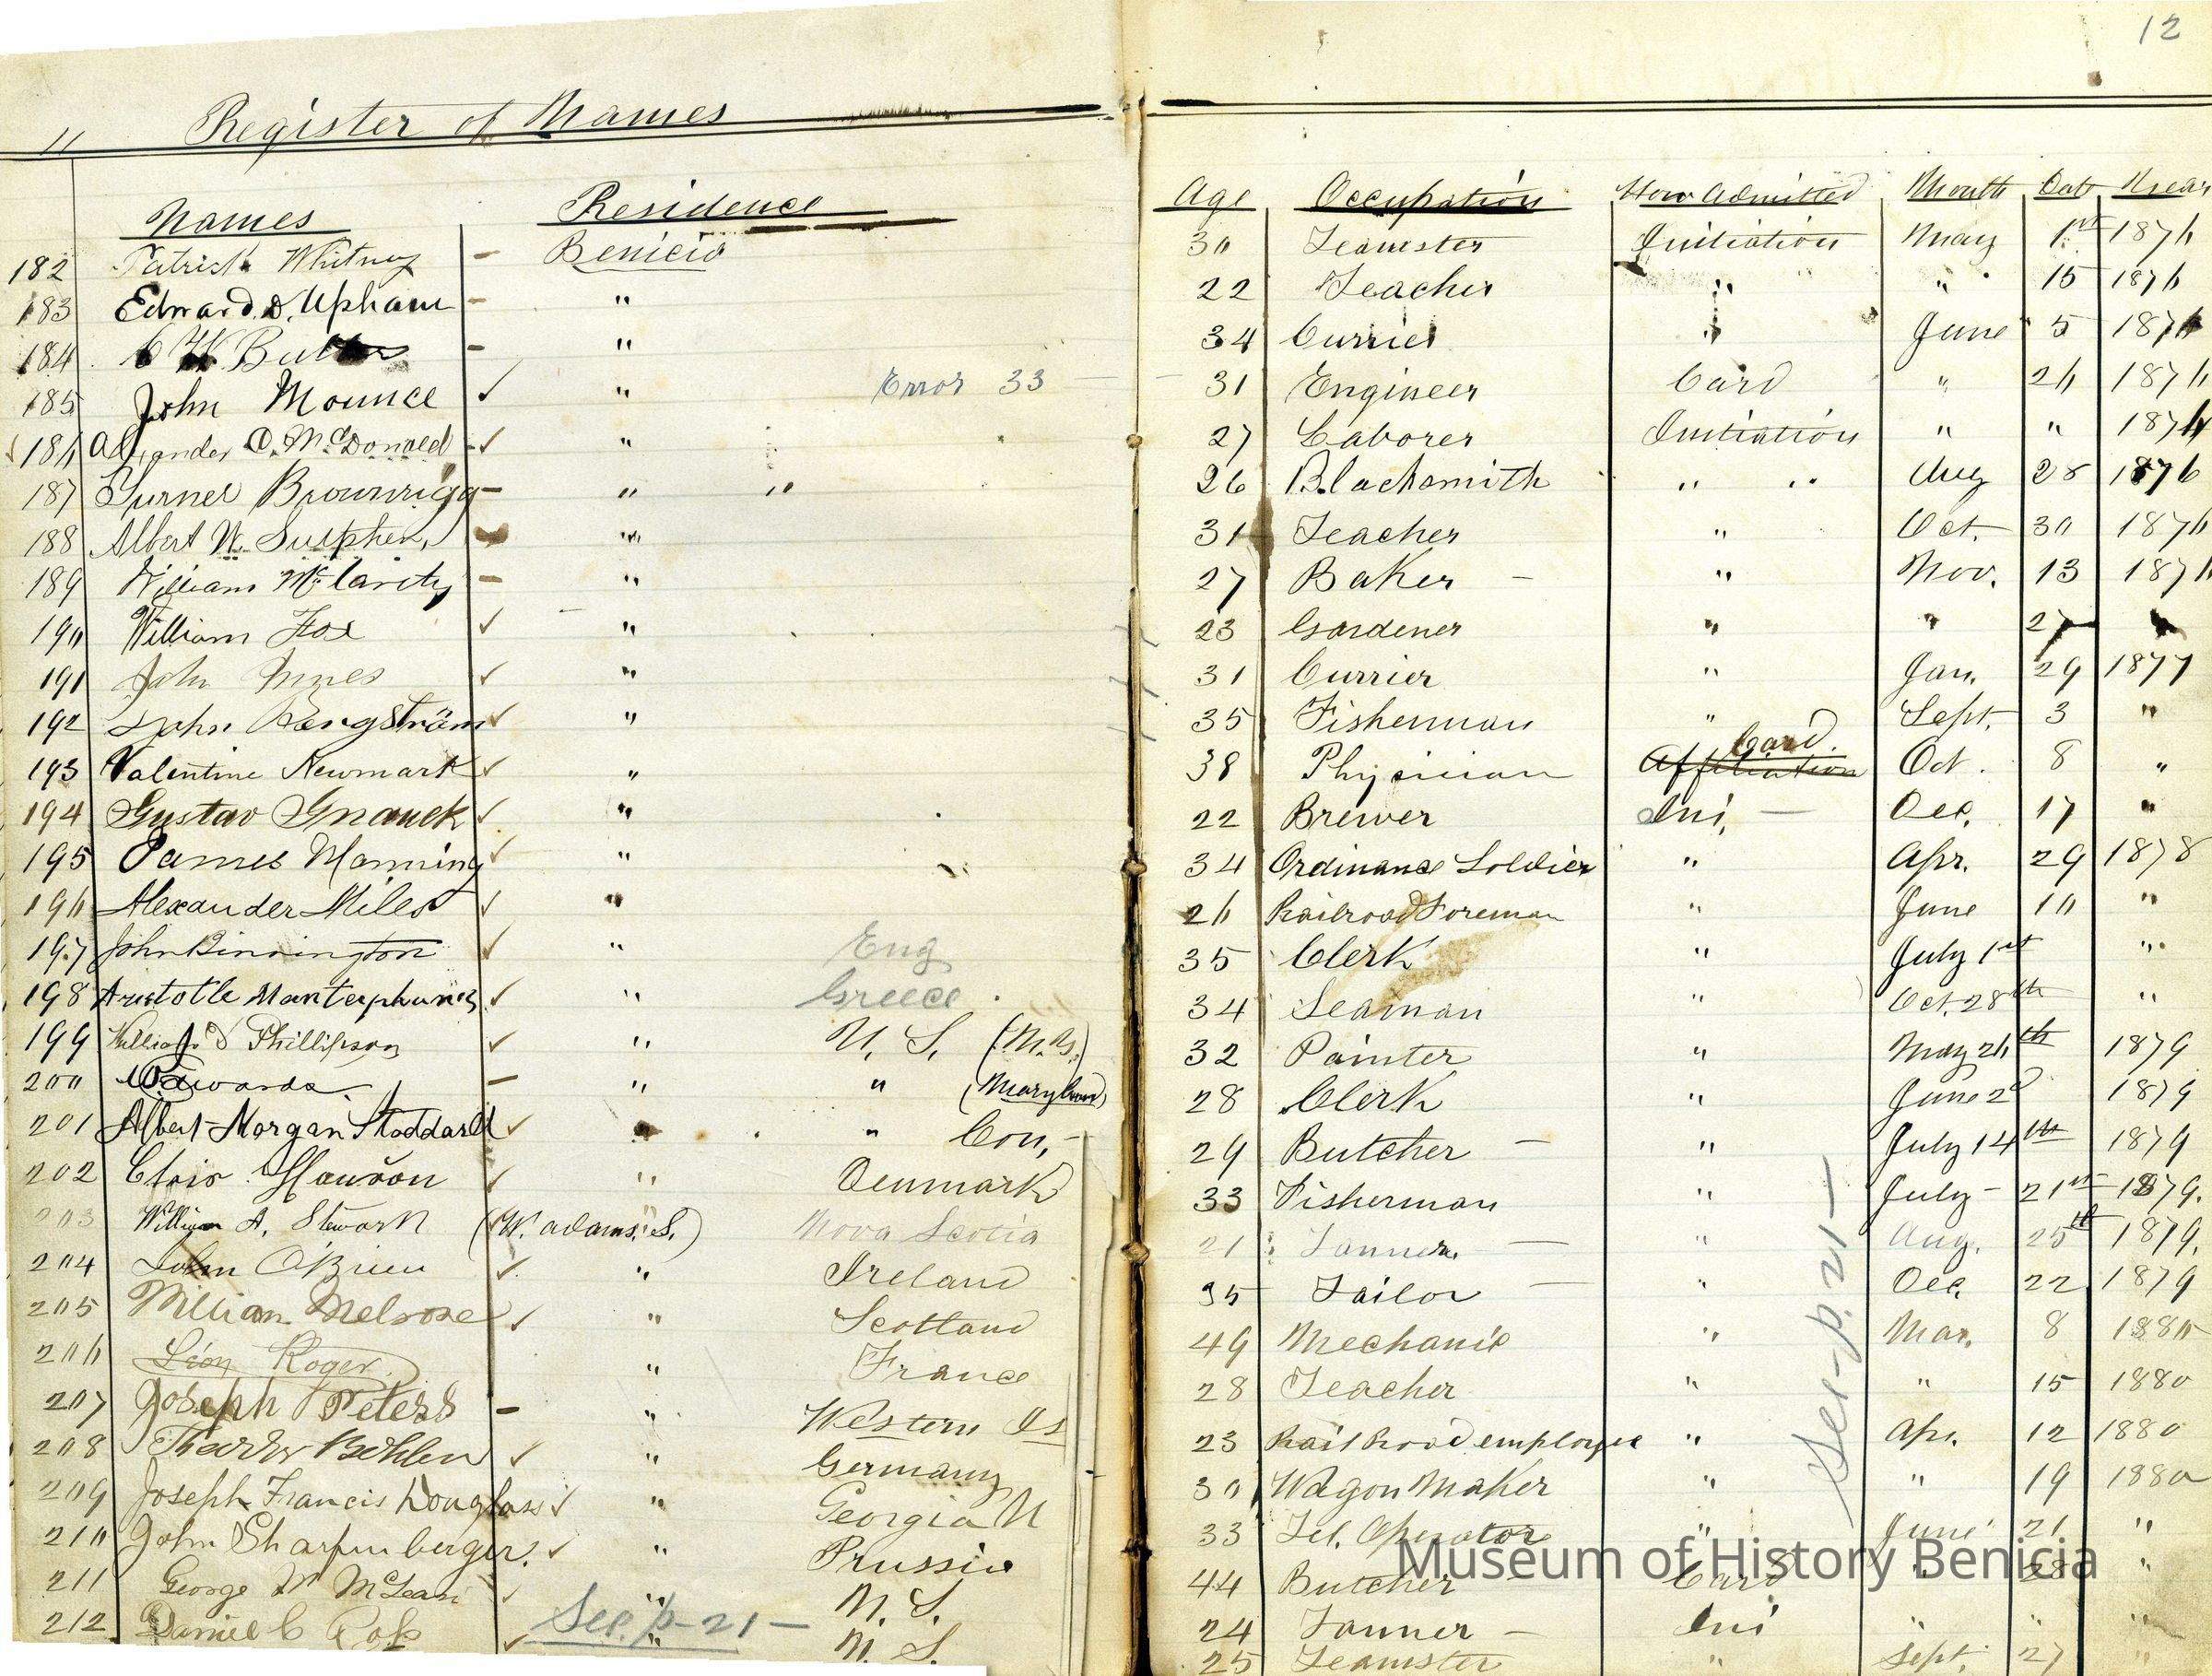 12
11 Register of Names
Names Residence Age Occupation How Admitted Month Date Year
182 Patrick Whitney - Benicia 30 Teamster Initiation May 1st 1876
183 Edward D. Upham - " 22 Teacher " " 15 1876
184 C W Butler - " 34 Currier " June 5 1876
185 John Mounce ✓ " Error 33 — 31 Engineer Card " 26 1876
186 Alexander O. McDonald ✓ " 27 Laborer Initiation " " 1876
187 Turner Brownrigg - " " 26 Blacksmith " " Aug 28 1876
188 Albert W. Sutphen, - " 31 Teacher " Oct. 30 1876
189 William McClarity - " 27 Baker - " Nov. 13 1876
190 William Fox ✓ " 23 Gardener " " 27 "
191 John Innes ✓ " 31 Currier " Jan. 29 1877
192 John Bengström ✓ " 35 Fisherman " Sept. 3 "
193 Valentine Newmark ✓ " 38 Physician Affiliation Card. Oct. 8 "
194 Gustav Gnauck ✓ " 22 Brewer Ini, — Dec. 17 "
195 James Manning ✓ " 34 Ordinance Soldier " Apr. 29 1878
196 Alexander Miles ✓ " 26 Railroad Foreman " June 10 "
197 John Binnington ✓ " Eng 35 Clerk " July 1st "
198 Aristotle ✓ " Greece 34 Seaman " Oct. 28th "
199 William D Phillipson ✓ " U. S. 32 Painter " May 26th 1879
200 Edwards - " " (Maryland) 28 Clerk " June 2d 1879
201 Albert Morgan Stoddard ✓ " " Con, - 29 Butcher — " July 14th 1879
202 Chris Hanson ✓ " Denmark 33 Fisherman " July - 21st 1879.
203 William A. Stewart (W. Adams. S.) " Nova Scotia 21 Tanner — " Aug. 25th 1879.
204 John O'Brien ✓ " Ireland 35 Tailor — " Dec. 22 1879
205 William Melrose ✓ " Scotland 49 Mechanic " Mar. 8 1880
206 Léon Roger " France 28 Teacher " " 15 1880
207 Joseph Peters - " Western Is 23 Rail Road employee " Apr. 12 1880
208 Theodor Behlen ✓ " Germany 30 Wagon Maker " " 19 1880
209 Joseph Francis Douglass ✓ " Georgia 33 Tel. Operator " June 21 "
210 John Sharpenberger. ✓ " Prussia 44 Butcher - Card " 28 "
211 George W McLean ✓ " N. S. 24 Tanner - Ini " " "
212 Daniel C ✓ " N. S. 25 Teamster " Sept. 27 "
See. p-21 —
See-p. 21 —
Museum of History Benicia